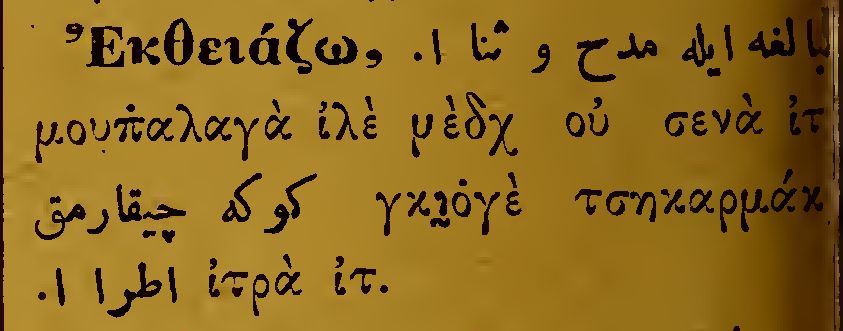 Ἐκθειάζω, مبالغه ايله مدح و ثنا ا.
μουπ̇αλαγὰ ἰλὲ μὲδχ οὐ σενὰ ἰτ
كوكه چيقارمق γκι̮ο̇γὲ τσηκαρμάκ
اطرا ا. ἰτρὰ ἰτ.